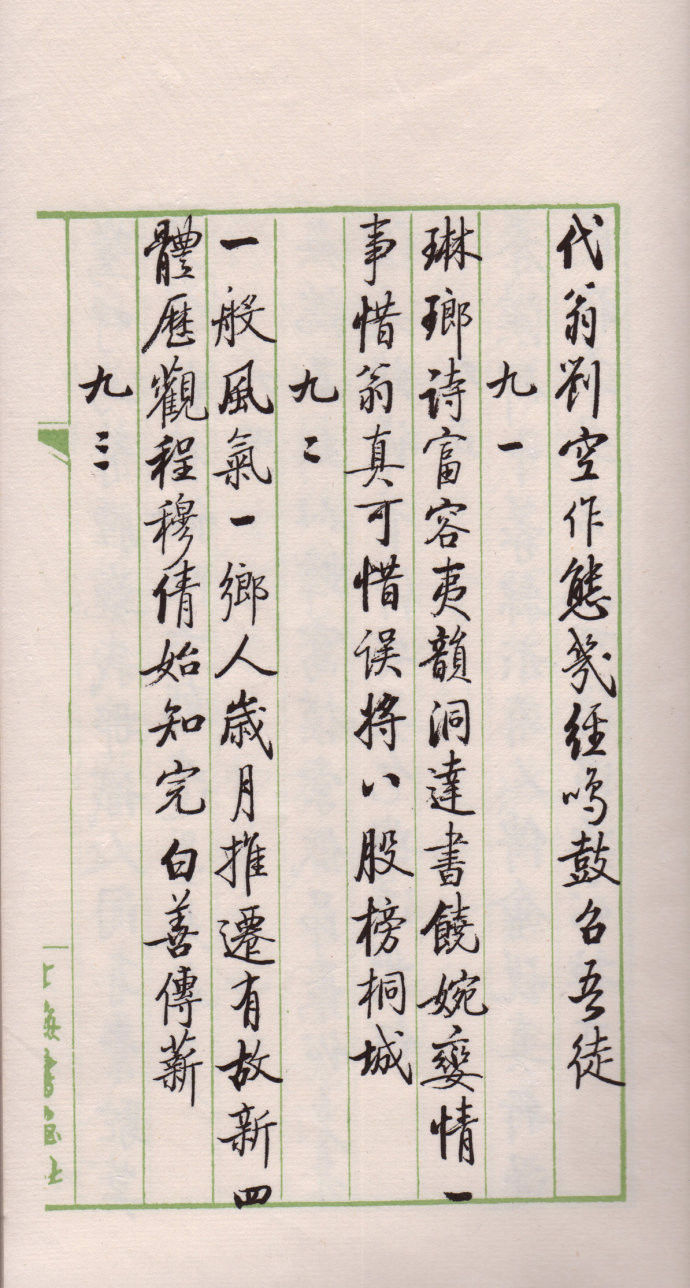 代翁劉空作態幾經鳴鼓召吾徒
九一
琳瑯詩富容夷韻洞達書饒婉孌情一
事惜翁真可惜误將八股榜桐城
九二
一般風氣一鄉人歲月推遷有故新四
體歷觀程穆倩始知完白善傳薪
九三
上海書画社